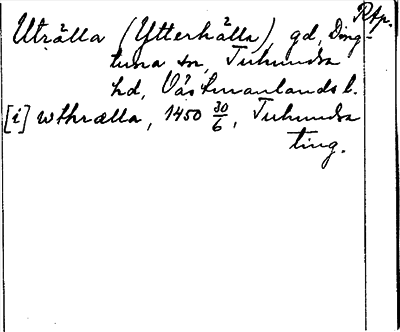 RAp.
Uträlla (Ytterhälla), gd, Ding-
tuna sn, Tuhundra
hd, Västmanlands l.
[i] wthrælla, 1450 30/6, Tuhundra
ting.